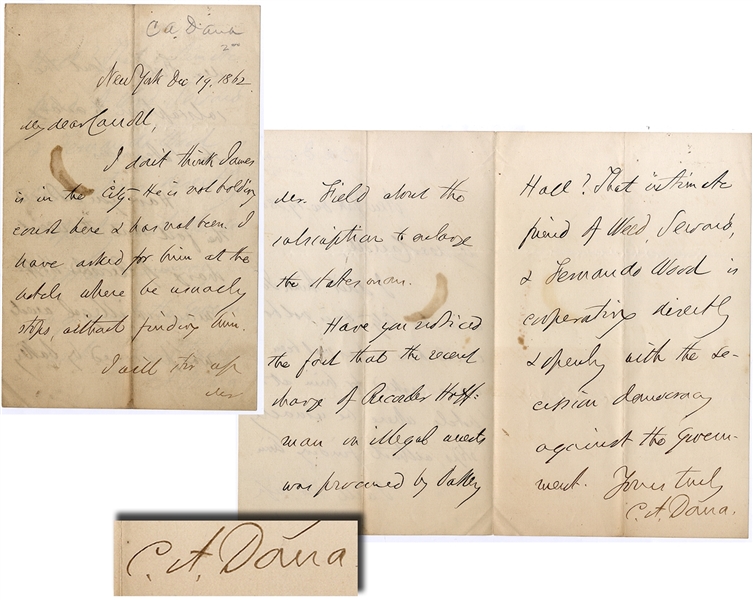 C A Dana
New York Dec 19, 1862.
My dear Carroll,
I don't think James
is in the city. He is not holding
court here & has not been. I
have asked for him at the
hotels where he usually
stops, without finding him.
I will stir up
Mr.
Mr. Field about the
subscription to enlarge
the Statesman.
Have you noticed
the fact that the recent
charge of Recorder Hoff-
man on illegal arrests
was procured by Oakey
Hall? That intimate
friend of Weed, Seward,
& Fernando Wood is
cooperating directly
& openly with the se-
cession democracy
against the govern-
ment. Yours truly
C. A. Dana.
C. A. Dana.